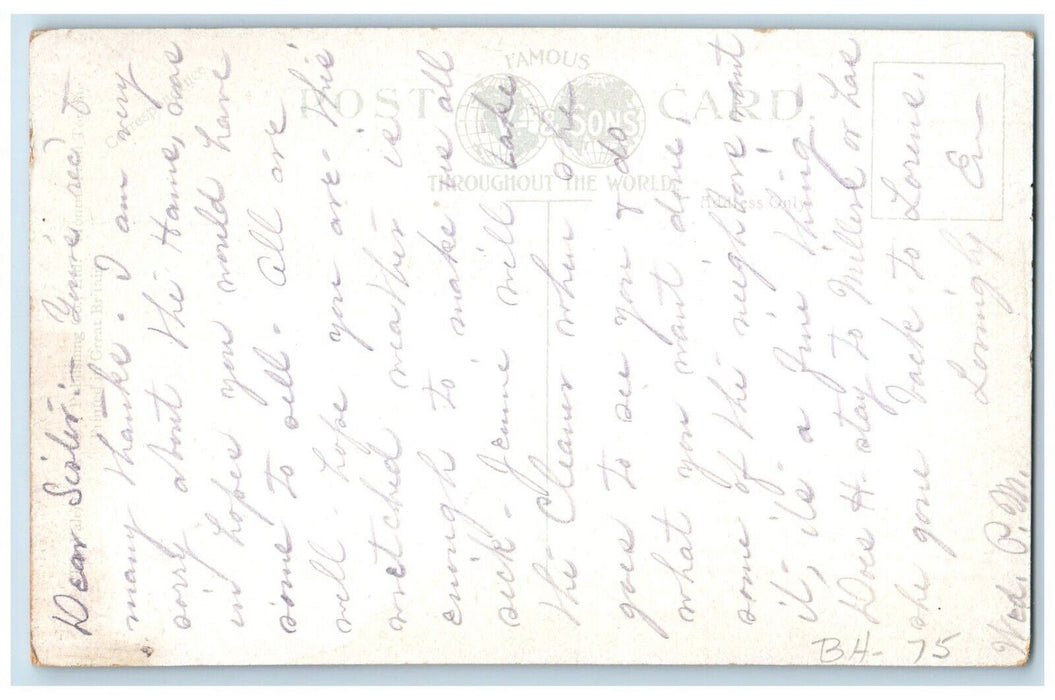 Dear Sister:- Yours rec'd
many thanks. I am very
sorry about the Hams, was
in hopes you would have
some to sell. All are
well - hope you are. This
wretched weather is
enough to make we all
sick. Jennie will take
the Cleaner when she
goes to see you & do
what you want done,
some of the neighbors want
it, its a fine thing -
Does H. stay to Millers or has
she gone back to Lorens,
Lovingly
Em
Wed. P.M.
FAMOUS
POST CARD.
& SONS
THROUGHOUT THE WORLD
Address Only
Great Britain
BH- 75